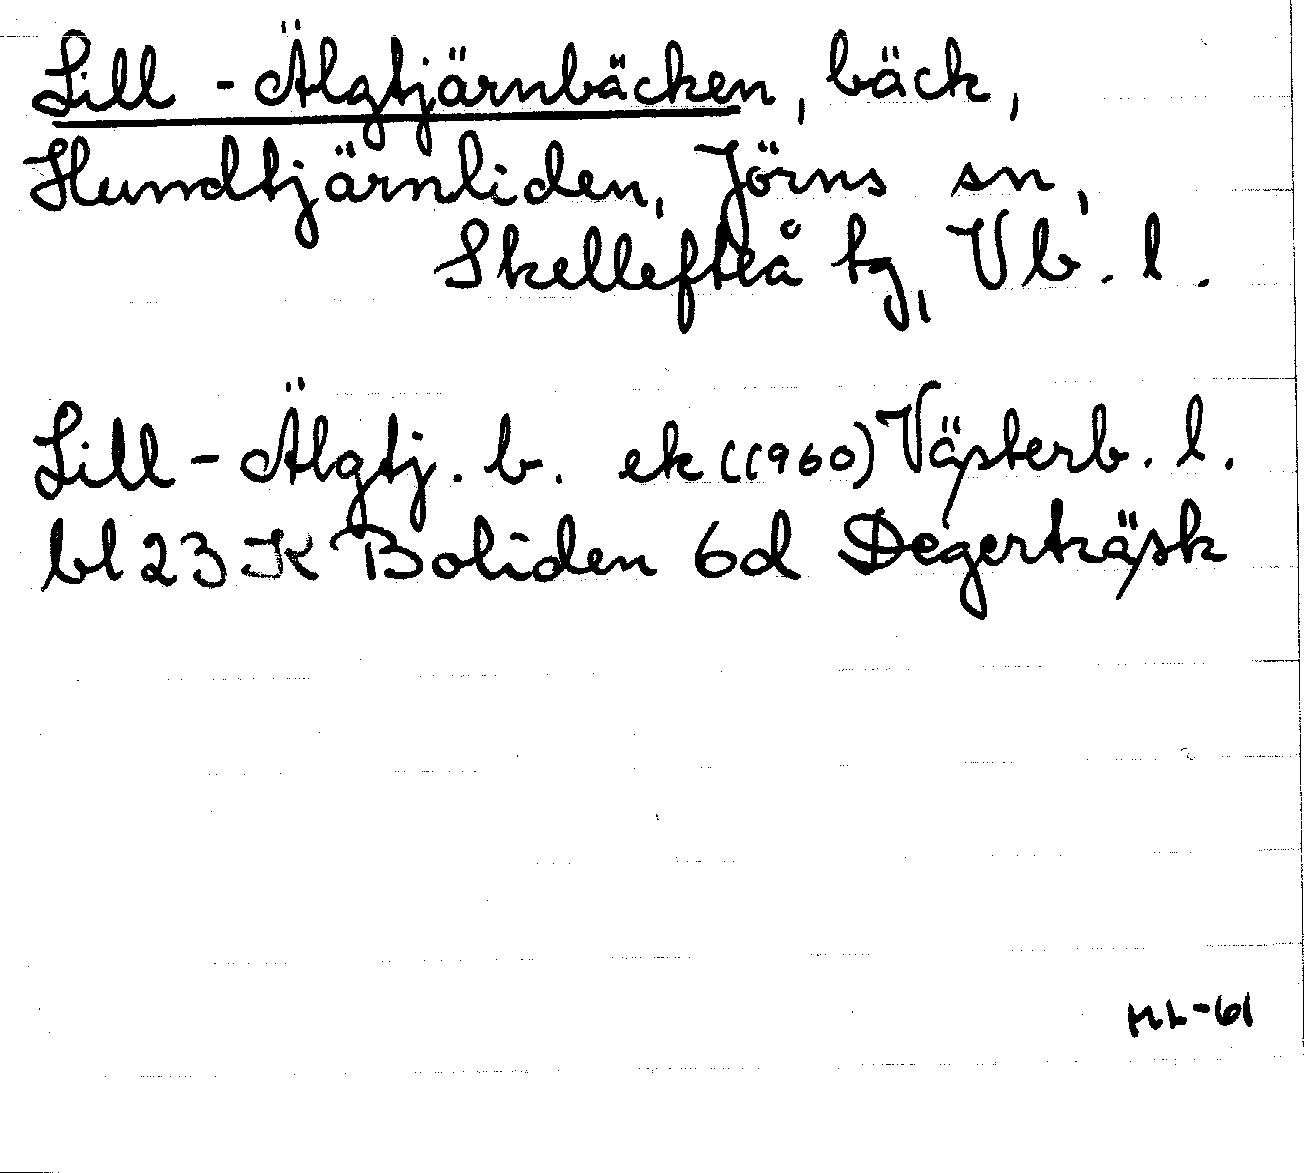 Lill-Älgtjärnbäcken, bäck,
Hundtjärnliden, Jörns sn,
Skellefteå tg, Vb. l.
Lill-Älgtj. b. ek (1960) Västerb. l.
bl 23 K Boliden 6d Degerträsk
ML-61